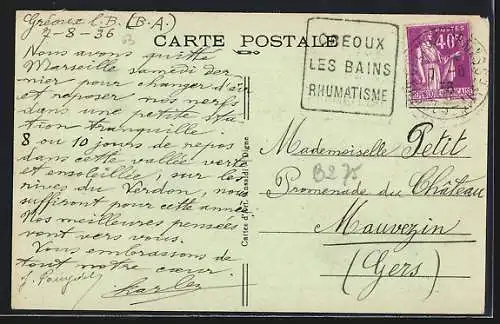 Gréoux L.B. (B.A.)
7-8-36
CARTE POSTALE
GREOUX
LES BAINS
RHUMATISME
40c
Nous avons quitté
Marseille samedi der-
nier pour changer d'air
et reposer nos nerfs
dans une petite sta-
tion tranquille.
8 ou 10 jours de repos
dans cette vallée verte
et ensoleillée, sur les
rives du Verdon, nous
suffiront pour cette année.
Nos meilleures pensées
vont vers vous.
Vous embrassons de
tout notre cœur.
Charles
Mademoiselle Petit
B275
Promenade du Château
Mauvezin
(Gers)